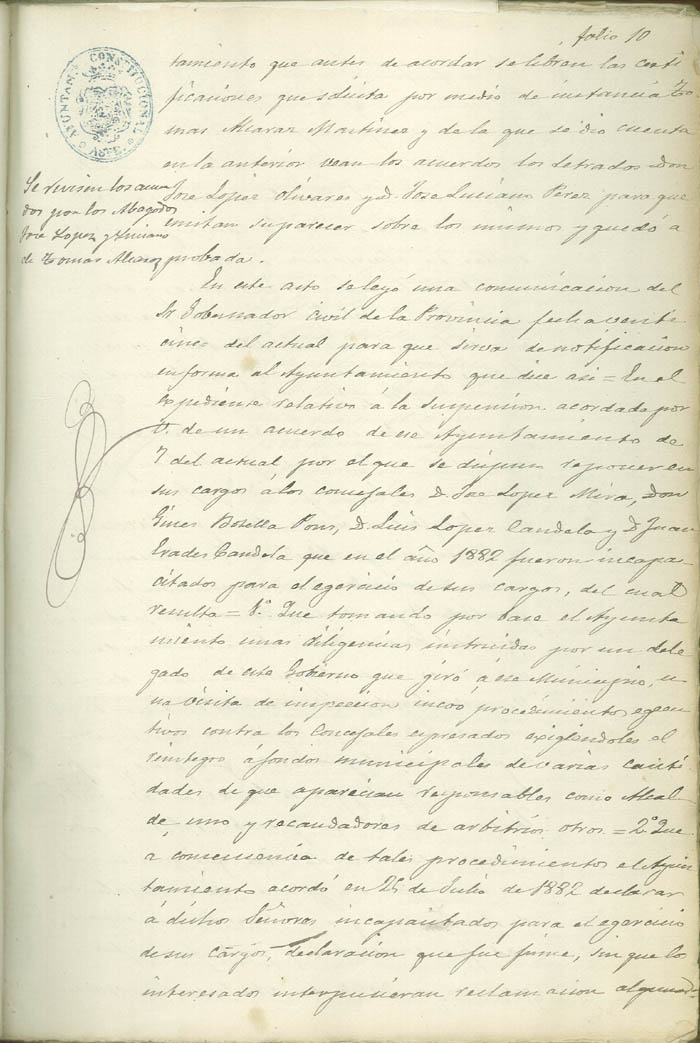 folio 10
AYUNTAM. CONSTITUCIONAL
tamiento que antes de acordar se libran las certi
ficaciones que solicita por medio de instancia To
mas Alcaraz Martinez y de la que se dio cuenta
en la anterior vean los acuerdos los letrados Don
Jose Lopez Olivares y D. Jose Luciano Perez para que
emitan su parecer sobre los mismos y quedó a
probada.
Se revisen los acuer
dos por los Abogados
Jose Lopez y Luciano
de Tomas Alcaraz
En este acto se leyó una comunicacion del
Sr Gobernador Civil de la Provincia fecha veinti
cinco del actual para que sirva de notificacion
en forma al Ayuntamiento que dice asi = En el
expediente relativo á la suspension acordada por
V. de un acuerdo de ese Ayuntamiento de
7 del actual por el que se dispuso reponer en
sus cargos á los concejales D. Jose Lopez Mira, Don
Gines Botella Pons, D. Luis Lopez Candela y D Juan
Prades Candela que en el año 1882 fueron incapa-
citados para el egercicio de sus cargos, del cual
resulta = 1.º Que tomando por base el Ayunta
miento unas diligencias instruidas por un dele
gado de este Gobierno que giró á ese Municipio, u
na visita de inspeccion incoó procedimientos egecu
tivos contra los Concejales espresados exigiendoles el
reintegro á fondos municipales de varias canti
dades de que aparecian responsables como Alcal
de uno y recaudadores de arbitrios otros = 2.º Que
á consecuencia de tales procedimientos el Ayun
tamiento acordó en 25 de Julio de 1882 declarar
á dichos Señores incapacitados para el egercicio
de sus cargos, declaracion que fue firme, sin que los
interesados interpusieran reclamacion alguna